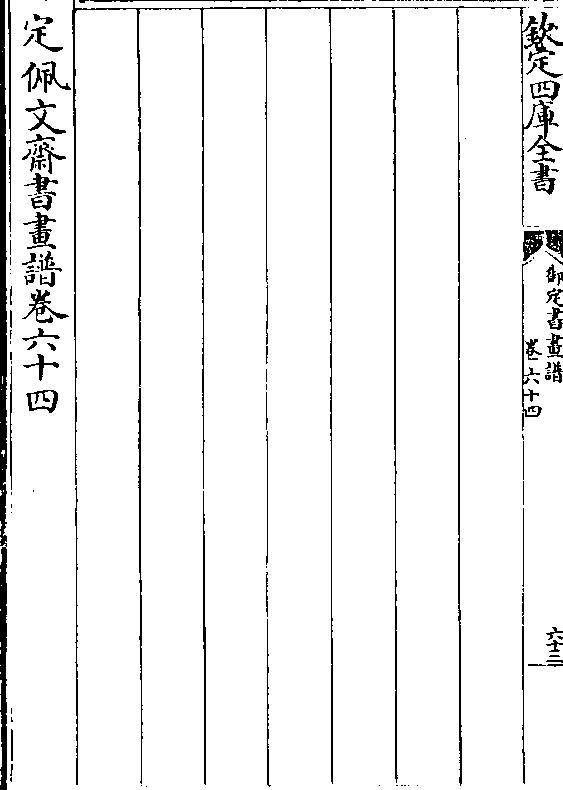 欽定四庫全書
御定書畫譜
卷六十四
六十三
定佩文齋書畫譜卷六十四